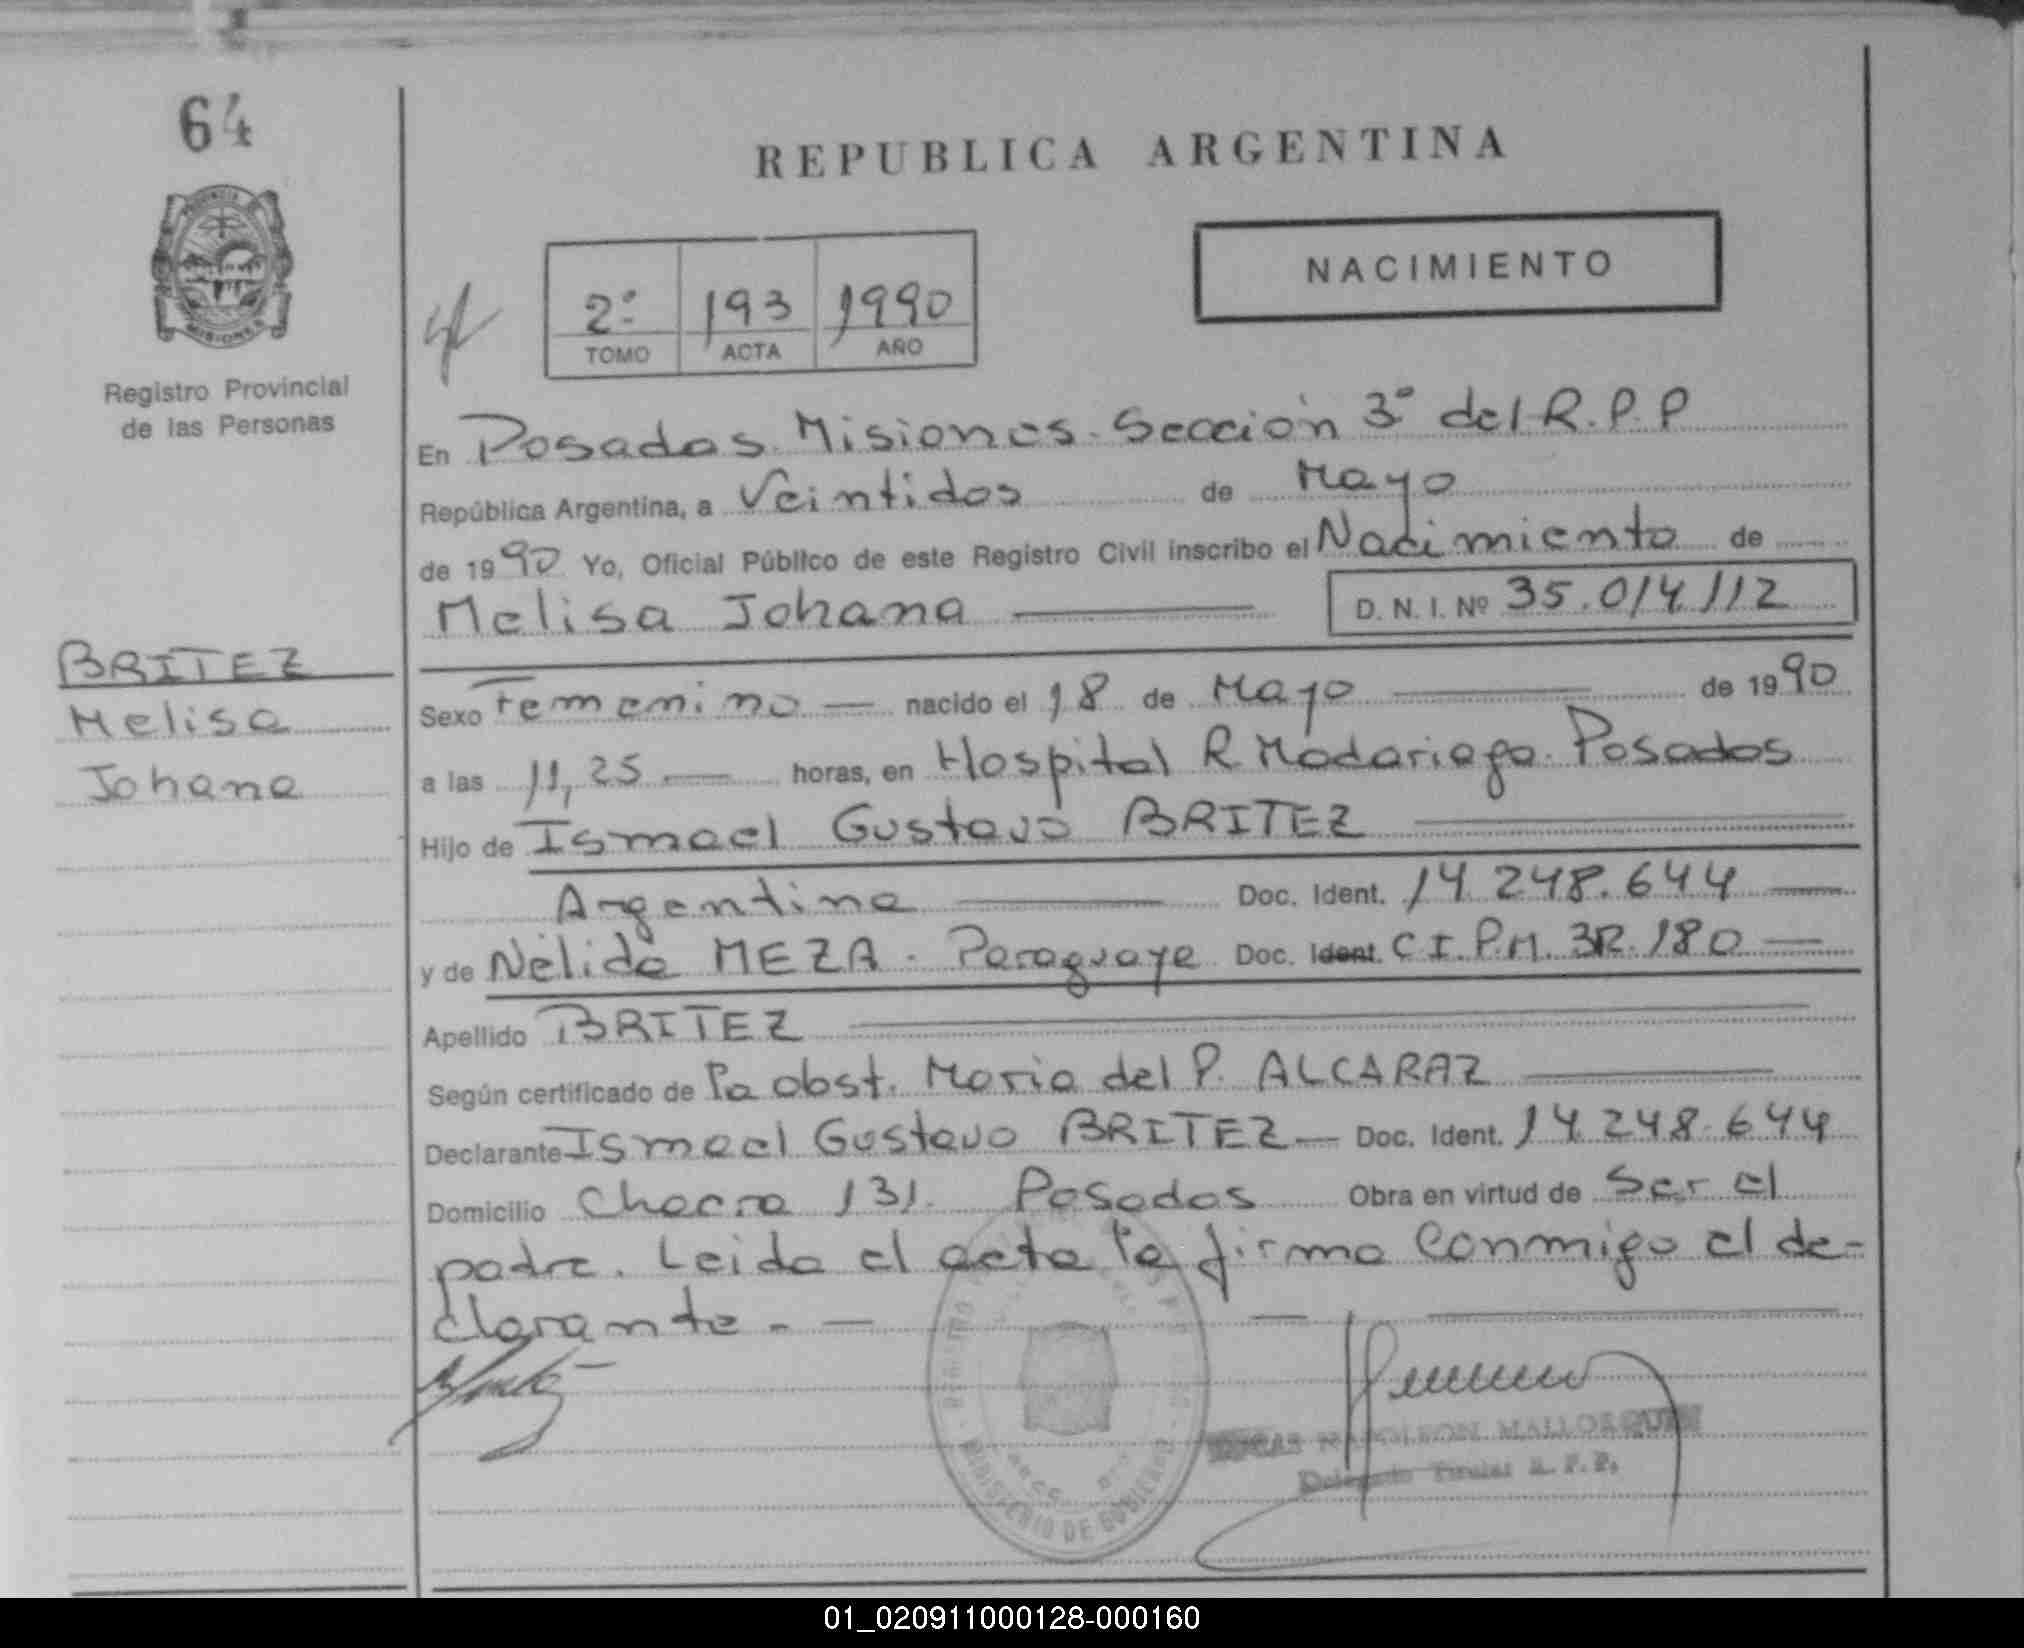 64
REPUBLICA ARGENTINA
NACIMIENTO
2º 193 1990
TOMO ACTA AÑO
Registro Provincial
de las Personas
En Posadas. Misiones. Sección 3º del R.P.P
República Argentina, a Veintidos de Mayo
de 1990 Yo, Oficial Público de este Registro Civil inscribo el Nacimiento de
Melisa Johana D. N. I. Nº 35.014.112
BRITEZ
Melisa
Johana
Sexo Femenino nacido el 18 de Mayo de 1990
a las 11,25 horas, en Hospital R Madariaga. Posadas
Hijo de Ismael Gustavo BRITEZ
Argentina Doc. Ident. 14.248.644
y de Nélida MEZA. Paraguaya Doc. Ident. C I. P.M. 312.180
Apellido BRITEZ
Según certificado de la obst. Maria del P. ALCARAZ
Declarante Ismael Gustavo BRITEZ Doc. Ident. 14.248.644
Domicilio Chacra 131. Posadas Obra en virtud de Ser el
padre. Leida el acta la firma Conmigo el de-
clarante.
NAPOLEON MALLORQUIN
Delegado Titular R. P. P.
MINISTERIO DE GOBIERNO
01_020911000128-000160